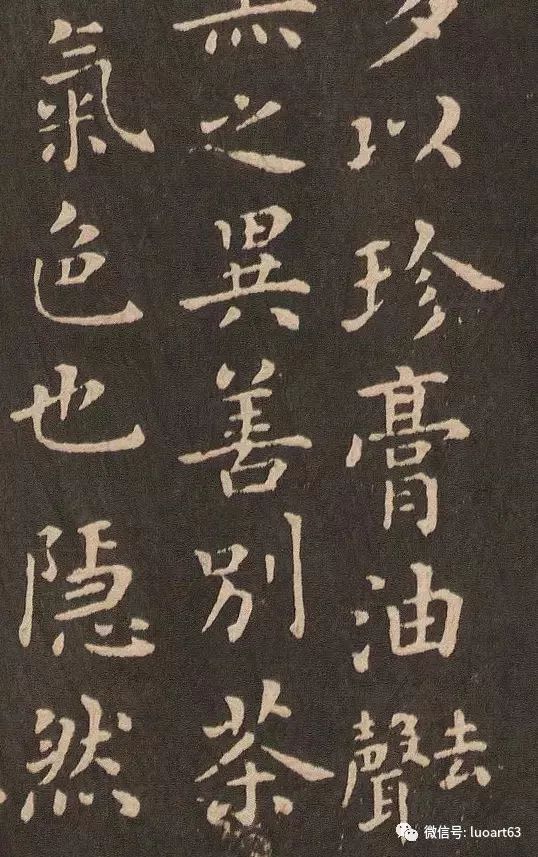 多以珍膏油去聲
黑之異善別茶
氣色也隱然
微信号: luoart63